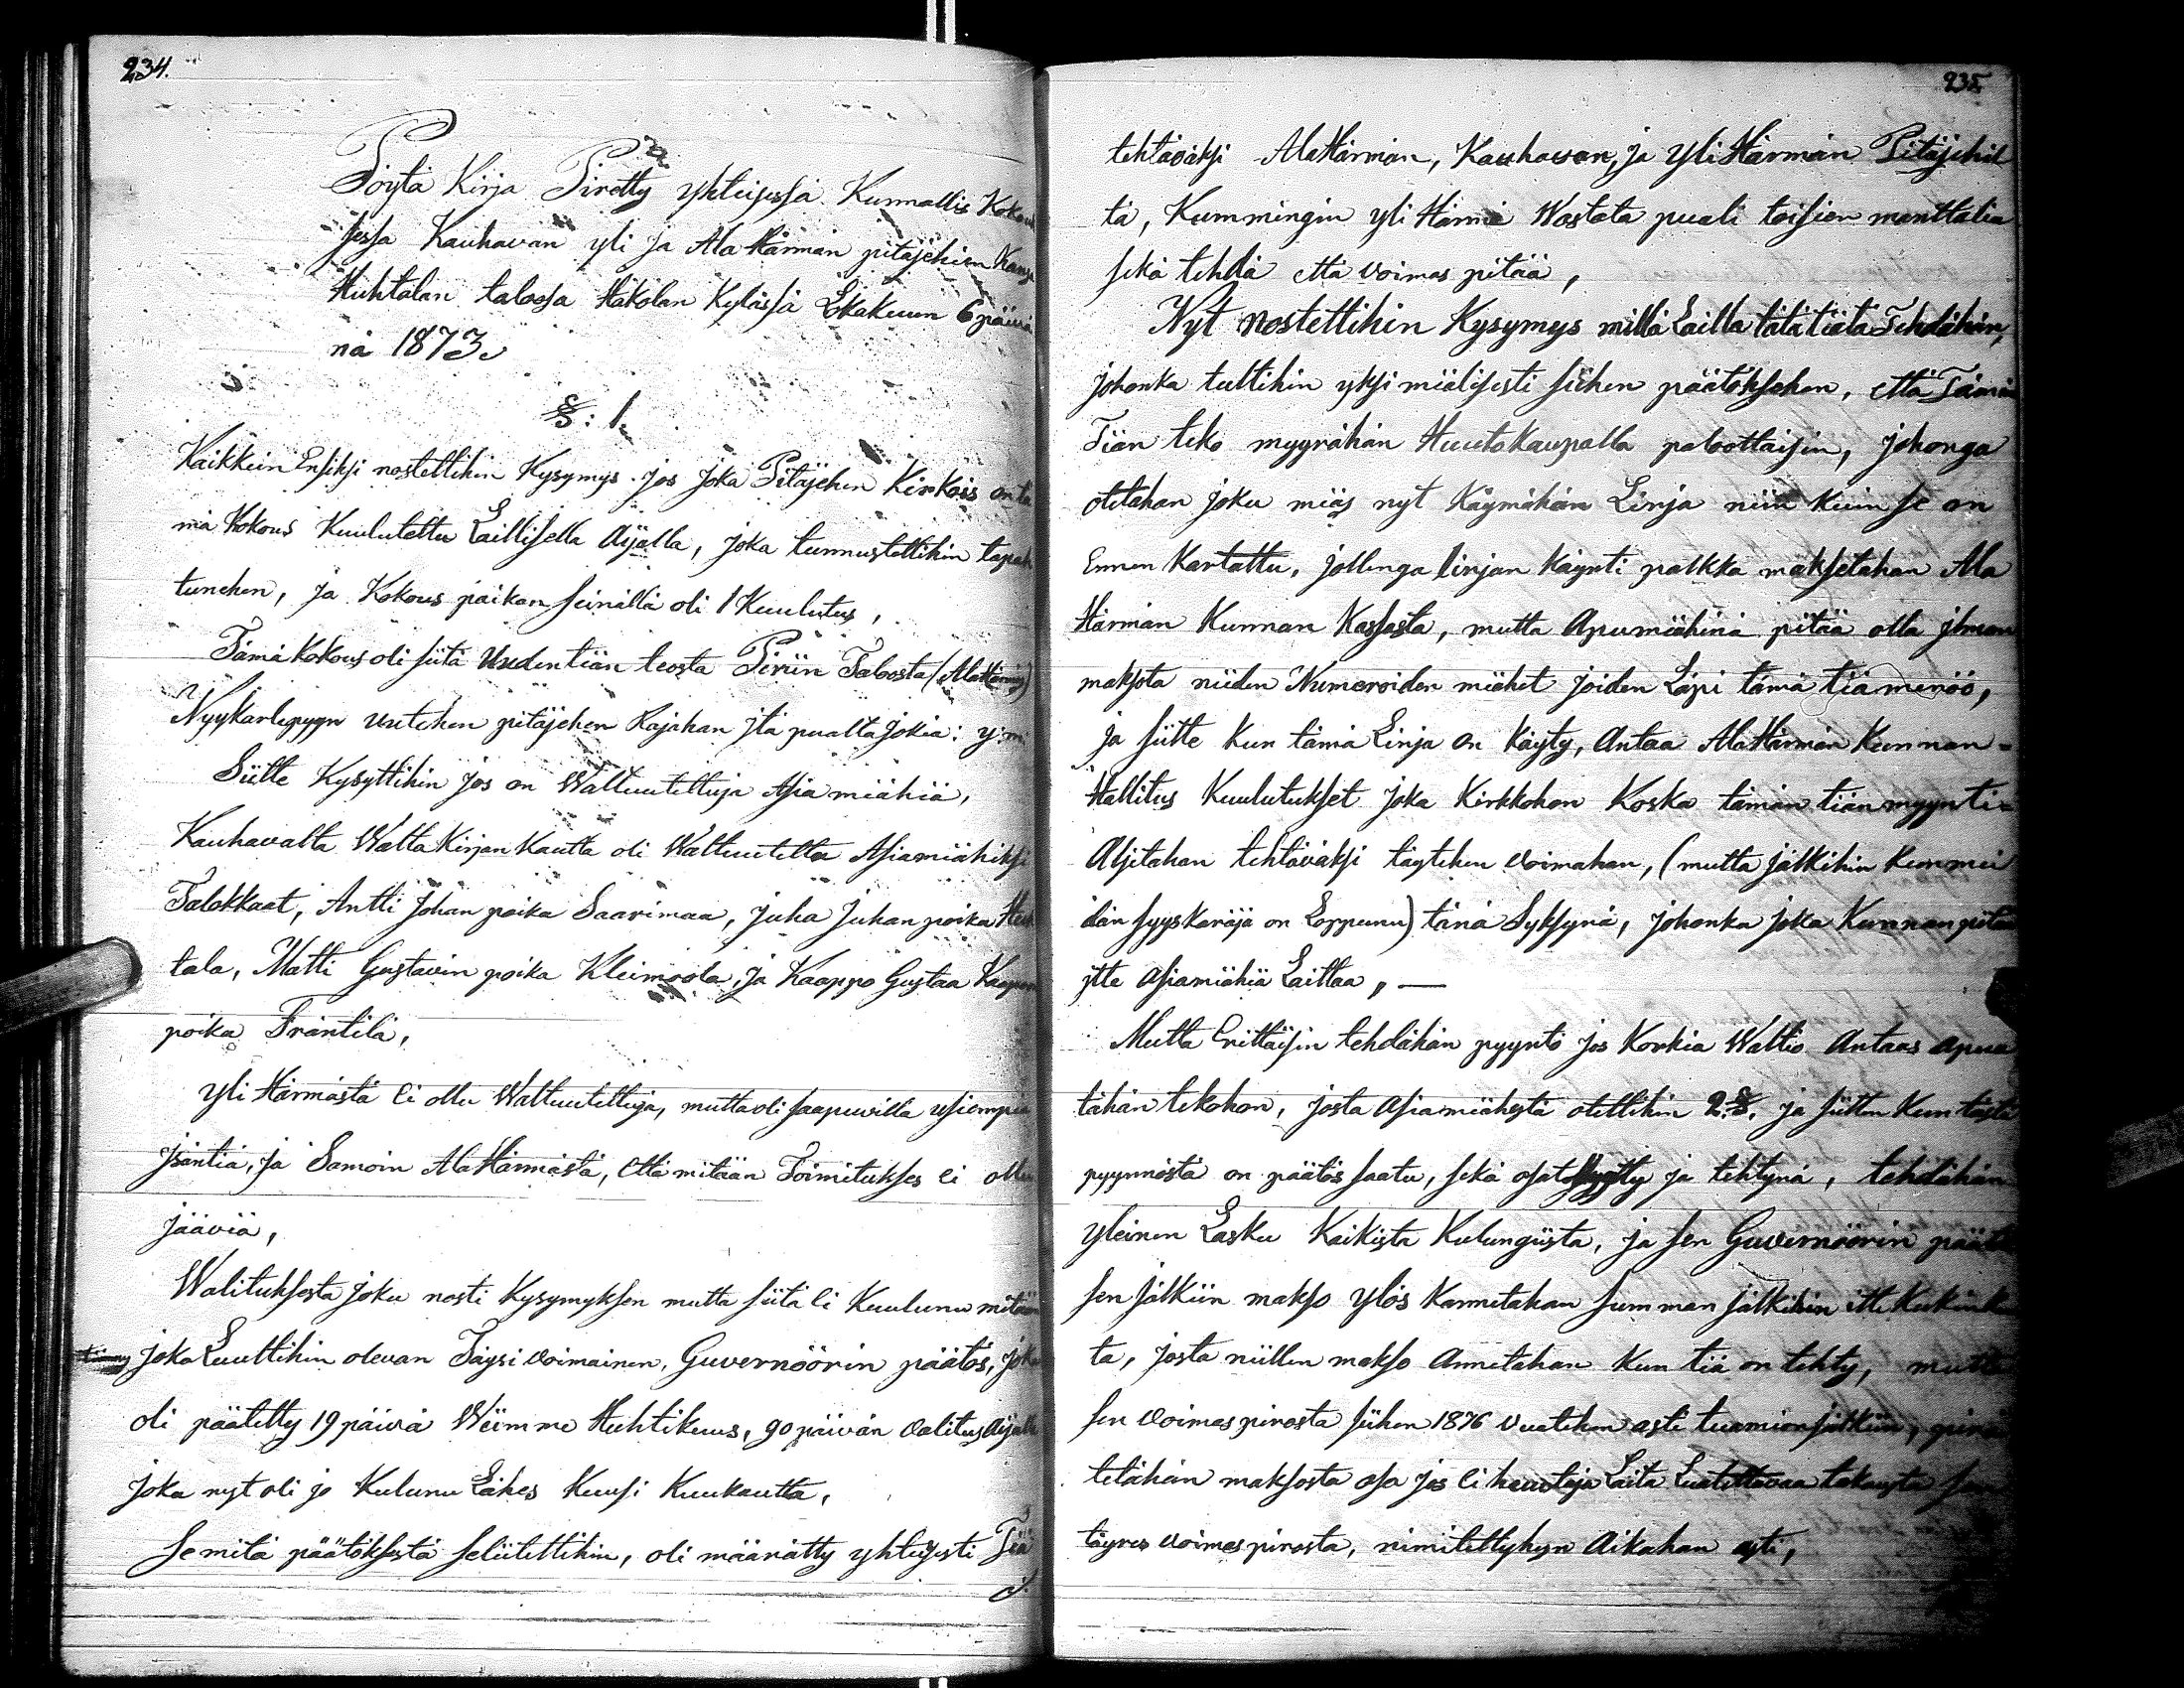 234.
Pöytä Kirja Piretty yhteisessä Kunnallis Kokou
sessa Kauhavan yli ja Ala Härmän pitäjehien Kans
Huhtalan talossa Hakolan Kylässä Lokakuun 6 päivä
nä 1873.
§: 1.
Kaikkein Ensiksi nostettihin Kysymys. jos joka Pitäjehen Kirkois on tä
mä Kokous Kuulutettu Laillisella Aijalla, joka tunnustettihin tapah
tunehen, ja Kokous paikan seinällä oli 1 Kuulutus,
Tämä Kokous oli siitä Uudentiän teosta Periin Taloosta (AlaHärmäs)
Nyykarlepyyn uutehen pitäjehen Rajahan jtä pualta jokia: y:m
Siitte Kysyttihin jos on Waltuutettuja Asia miähiä,
Kauhavalta Walta Kirjan Kautta oli Waltuutettu Asiamiähiksi
Talokkaat, Antti Johan poika Saarimaa, juha Juhan poika Huh
tala, Matti Gustavin poika Kleimoola, ja Kaappo Gustaa Kaapon
poika Främtilä,
yli Härmästä ei ollu Waltuutettuja, mutta oli saapuvilla usiempia
jsäntiä, ja Samoin Ala Härmästä, Että mitään Toimitukses ei ollu
jääviä,
Walituksesta joku nosti Kysymyksen mutta siitä ei Kuulunu mitään
joka Luultihin olevan Täysi voimainen, Guvernöörin päätös, joka
oli päätetty 19 päivä Wiimme Huhtikuus, 90 päivän valitus Aijalla
joka nyt oli jo Kulunu Lähes Kuusi Kuukautta,
Se mitä päätöksestä selitettihin, oli määrätty yhteisesti Tiä
235
tehtäväksi AlaHärmän, Kauhavan, ja Yli Härmän Pitäjehil
tä, Kummingin yli Härmä Wastata puali toisien manttalia
sekä tehdä että voimas pitää,
Nyt Nostettihin Kysymys millä Lailla tätä tiätä Tehdähän,
johonka tultihin yksimiälisesti siihen päätöksehen, että Tämän
Tiän teko myyrähän Huutokaupalla paloottaisin, johonga
otetahan joku miäs nyt Käymähän Linja niin Kuin se on
Ennen Kartattu, jollenga linjan käynti palkka maksetahan Ala
Härmän Kunnan Kassasta, mutta Apumiähinä pitää olla jlman
maksota niiden Numeroiden miähet joiden Läpi tämä tiä menöö,
ja siitte Kun tämä Linja on Käyty, Antaa AlaHärmän Kunnan=
Hallitus Kuulutukset joka Kirkkohon Koska tämän tiän myynti=
Aljetahan tehtäväksi täytehen voimahan, (mutta jälkihin Kun mei
dän syyskäräjä on Loppunu) tänä Syksynä, johonka joka Kunnan pitää
jtte Asiamiähiä Laittaa,, —
Mutta Erittäisin tehdähän pyyntö jos Korkia Waltio Antaas apua
tähän tekohon, josta Asiamiähestä otettihin 2.§. ja siitten Kun tästä
pyynnöstä on päätös saatu, sekä osat Myyty ja tehtynä, tehdähän
yleinen Lasku Kaikista Kulungiista, ja sen Guvernöörin päätö
sen jälkiin makso ylös Kannetahan summan jälkihin
ta, josta niillen makso Annetahan Kun tiä on tehty, mutta
sen voimaspirosta siihen 1876 vuatehen asti tuamion jälkiin, pirä
tetähän maksosta osa jos ei huutaja Laita Luatettavaa takausta sen
täyres voimaspirosta, nimitettyhyn Aikahan asti,